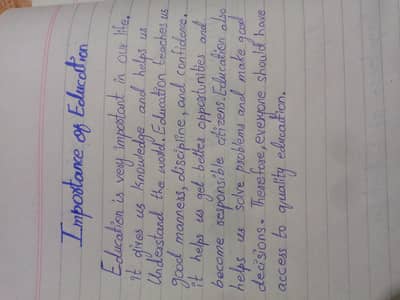 Importance of Education
Education is very important in our life.
it gives us knowledge and helps us
Understand the world. Education teaches us
good manners, discipline, and confidence.
it helps us get better opportunities and
become responsible citizens. Education also
helps us solve problems and make good
decisions. Therefore, everyone should have
access to quality education.